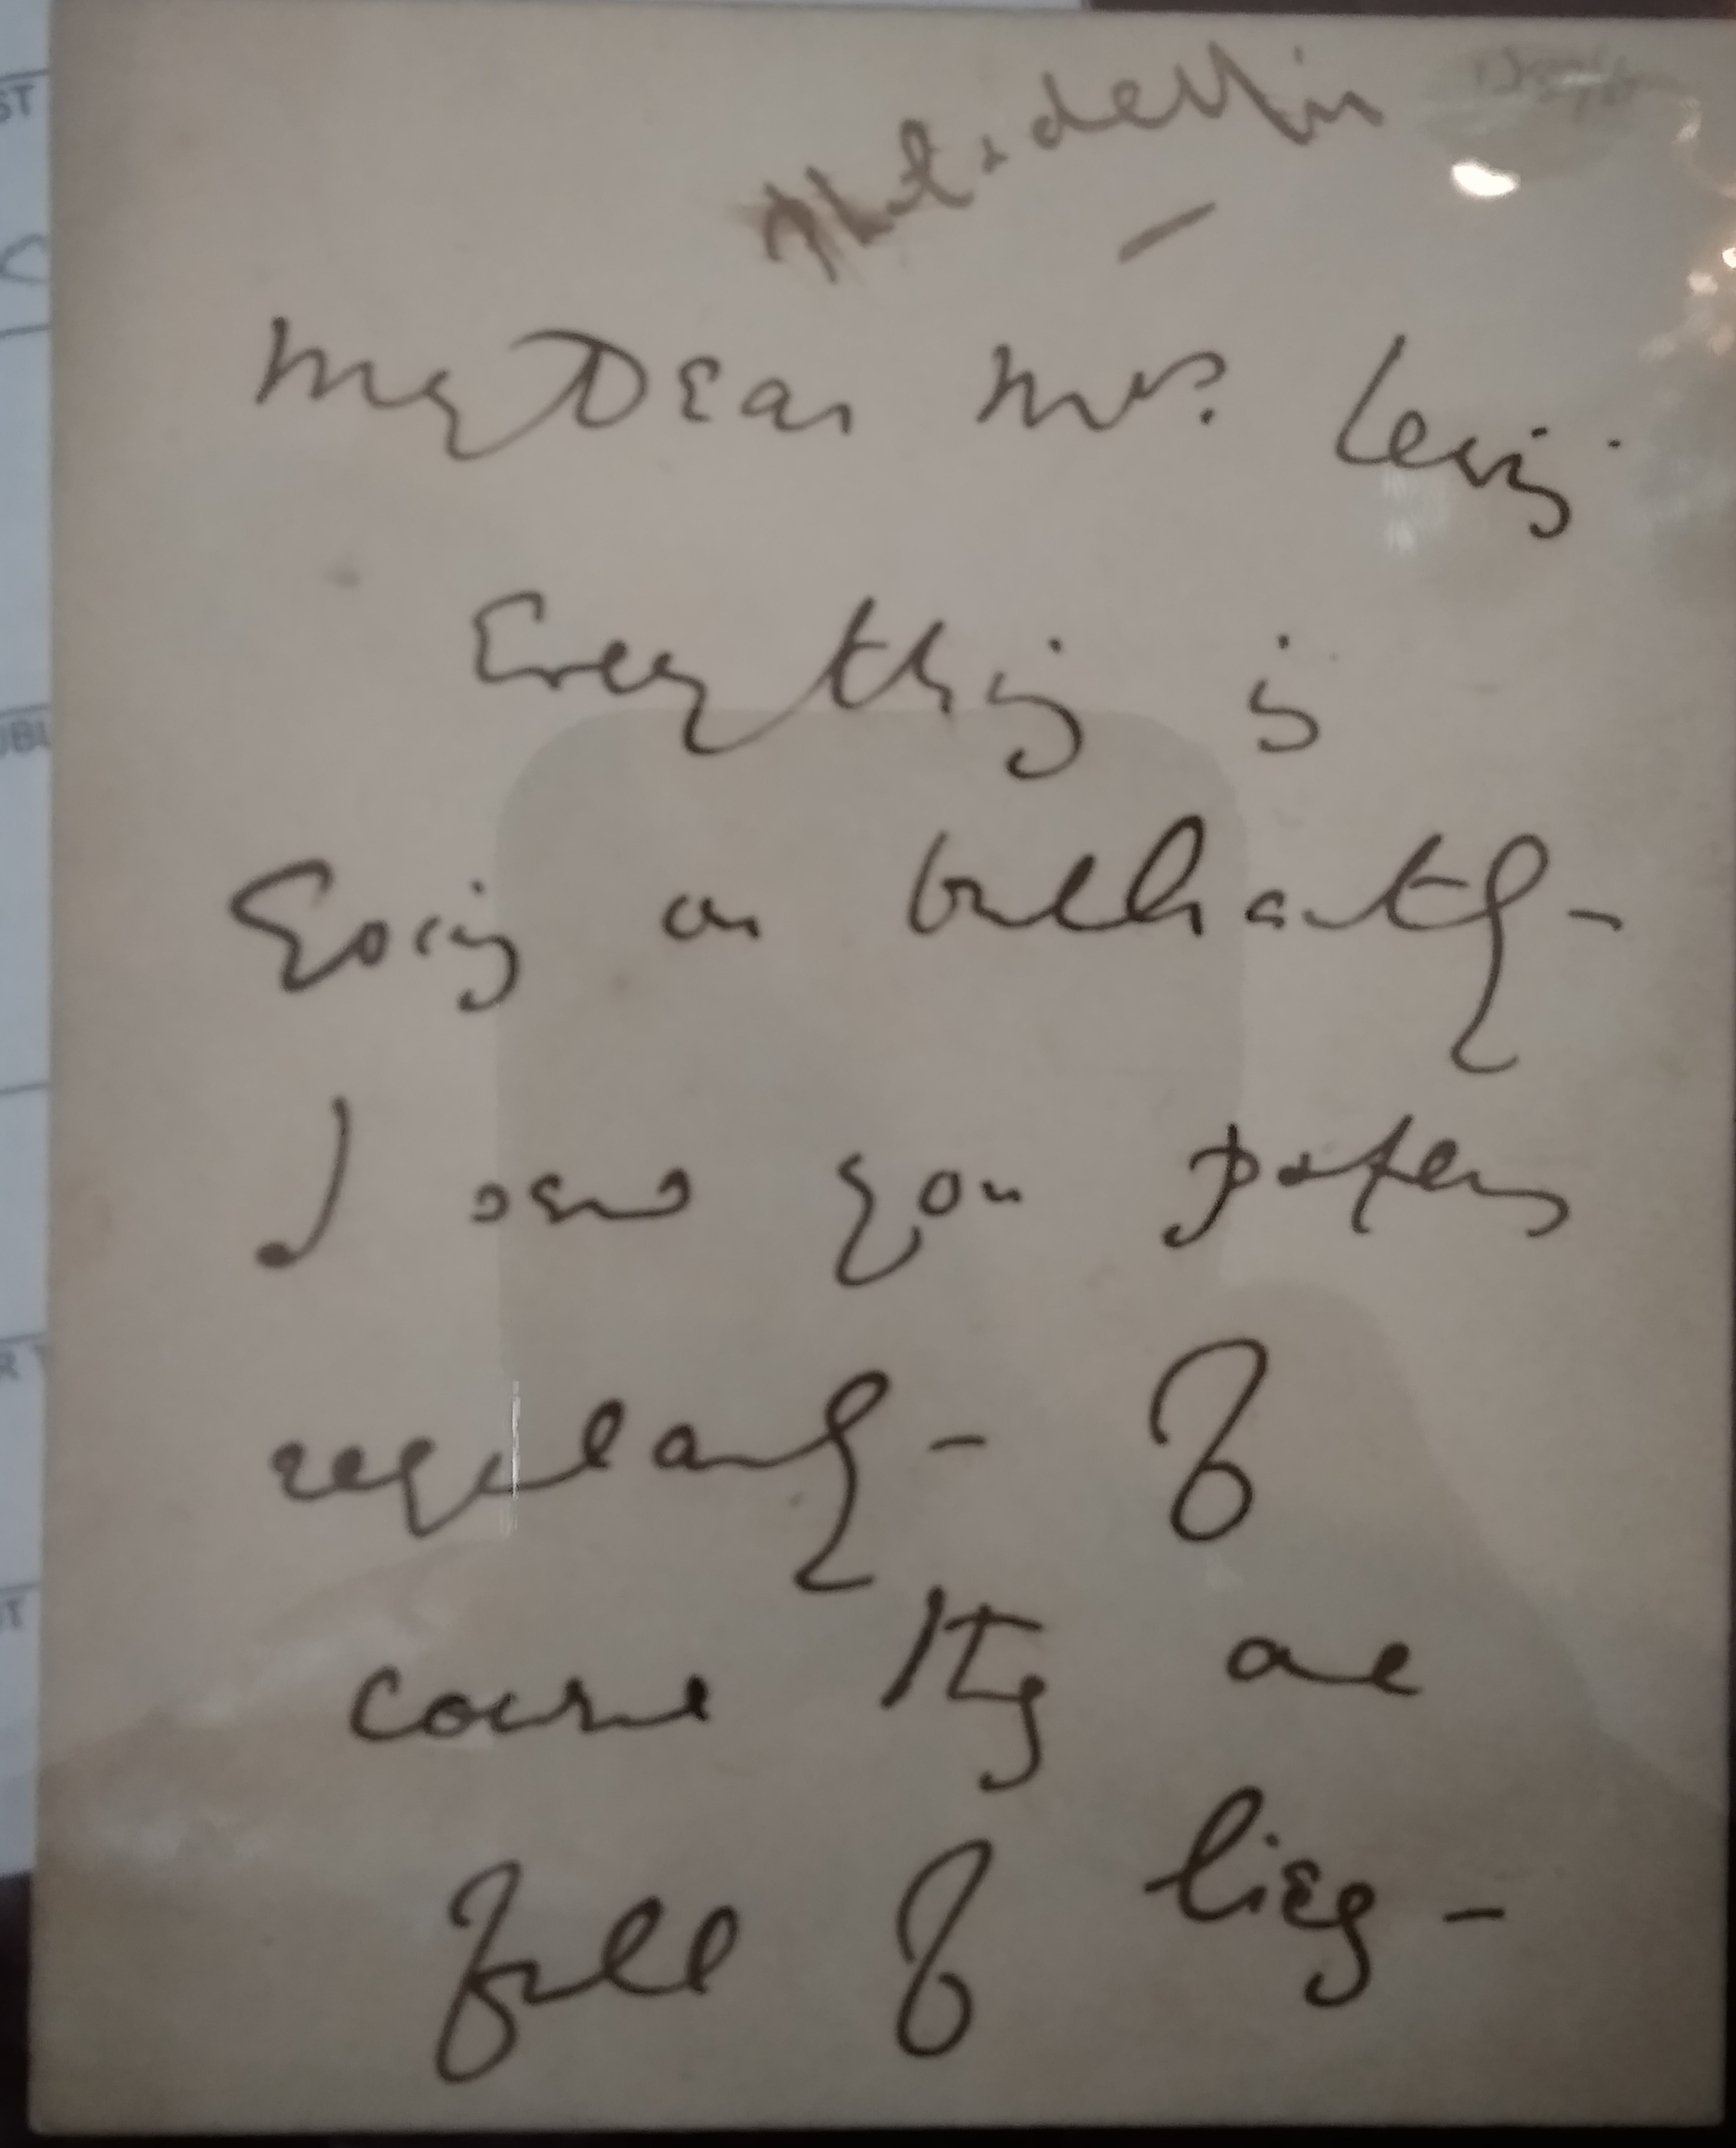 Philadelphia
My Dear Mrs. Levis.
Everything is
going on brilliantly -
I send you papers
regularly - Of
course they are
full of lies -
ST
UBL
R